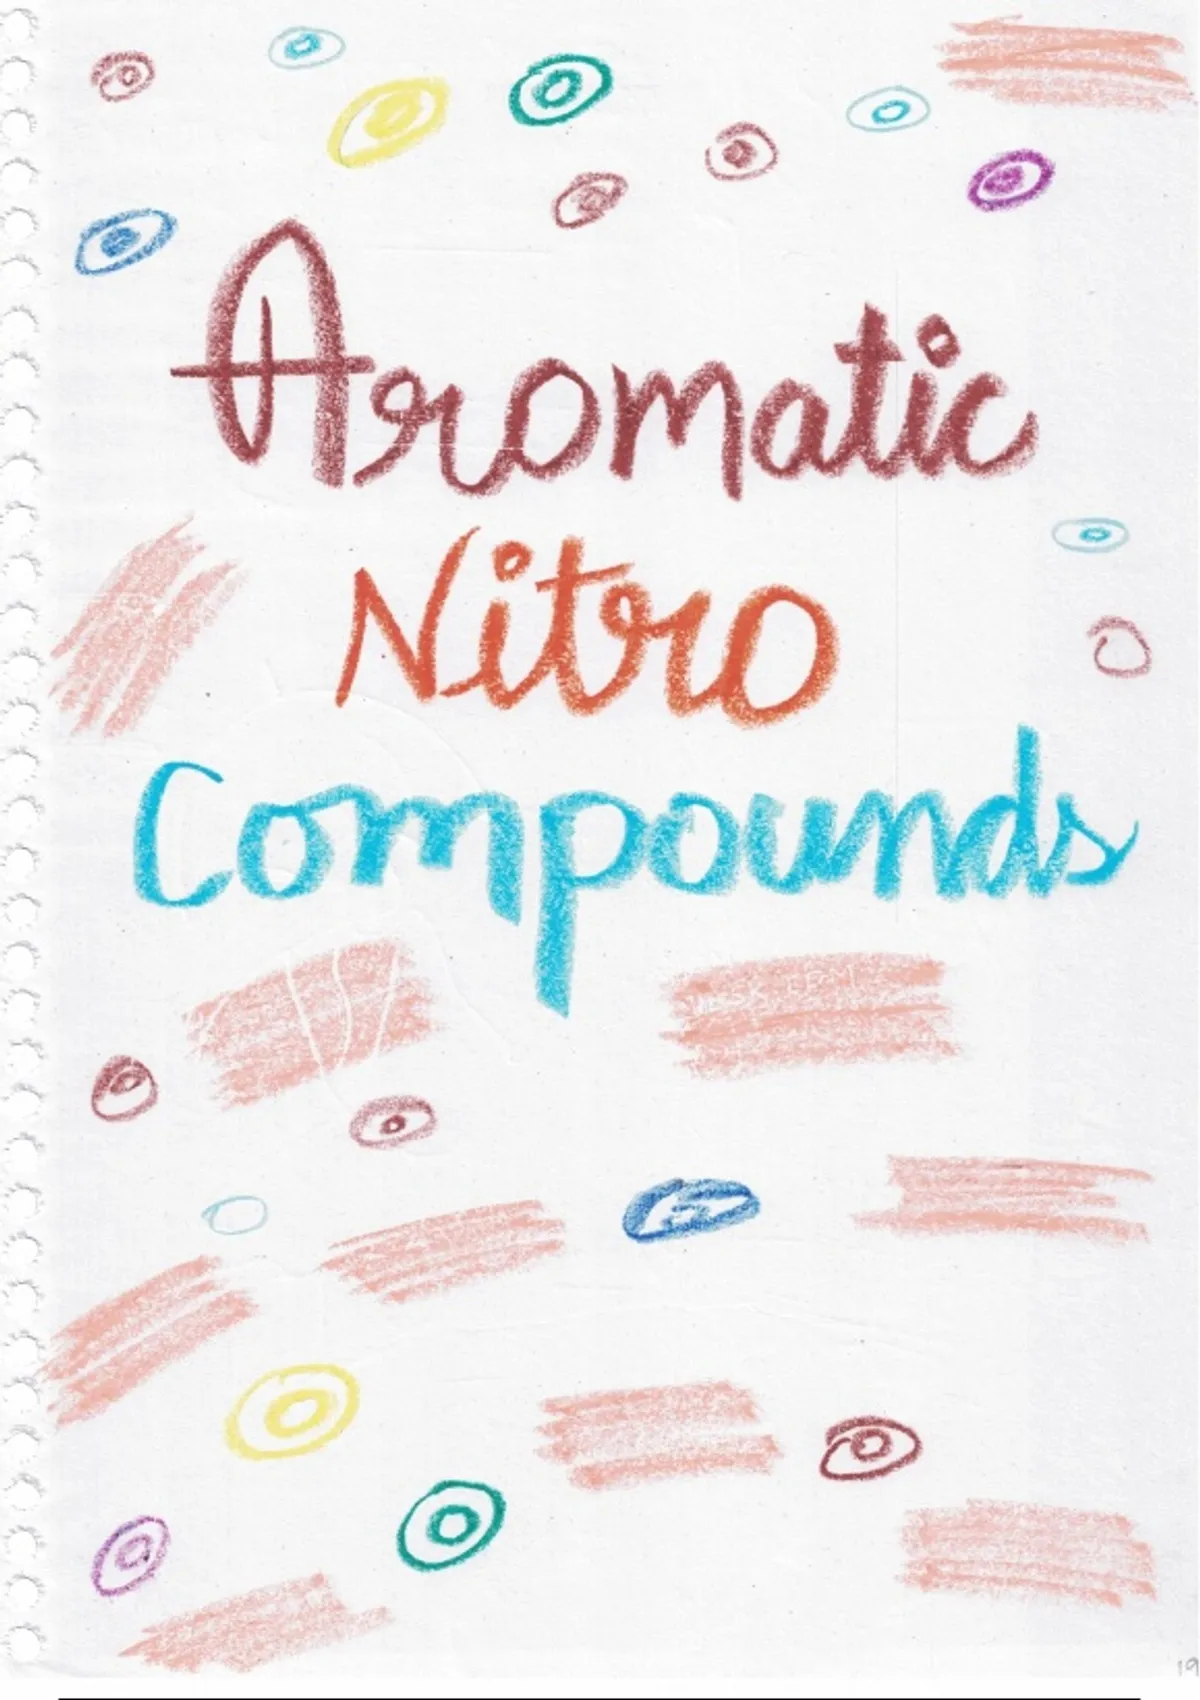 Aromatic
Nitro
Compounds
19